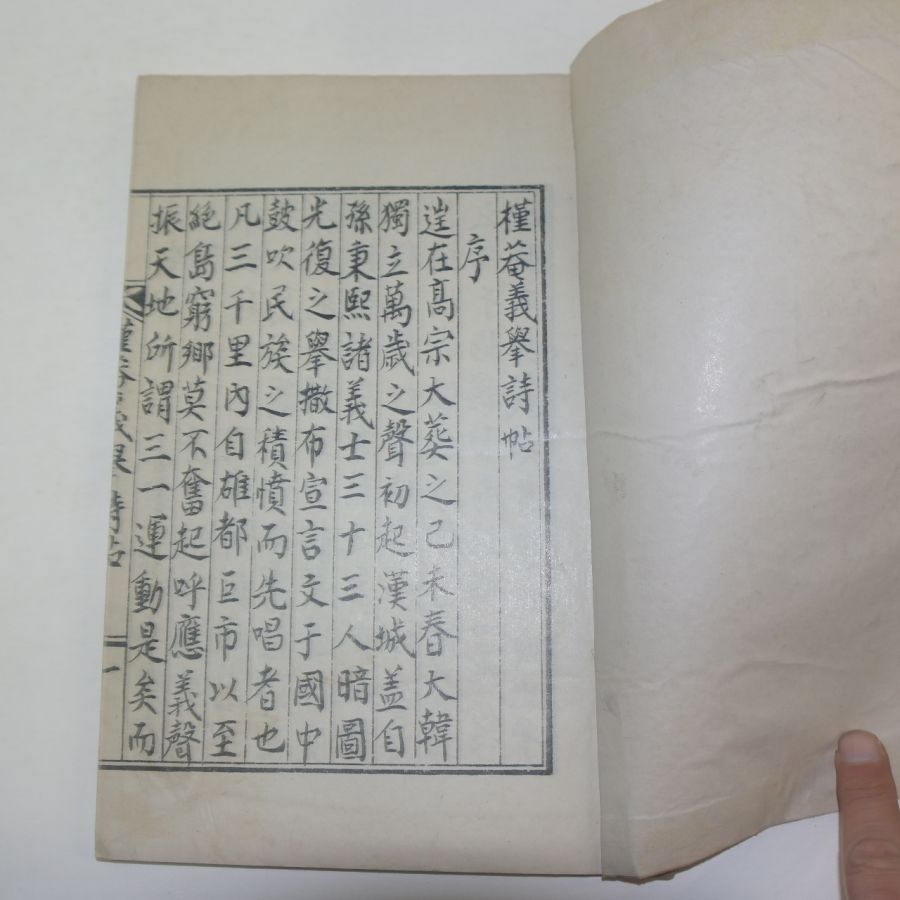 槿菴義擧詩帖
序
逞在高宗大葬之己未春大韓
獨立萬歲之聲初起漢城盖自
孫秉熙諸義士三十三人暗圖
光復之擧撒布宣言文于國中
鼓吹民族之積憤而先唱者也
凡三千里內自雄都巨市以至
絕島窮鄉莫不奮起呼應義聲
振天地所謂三一運動是矣而
槿菴義擧詩帖
一